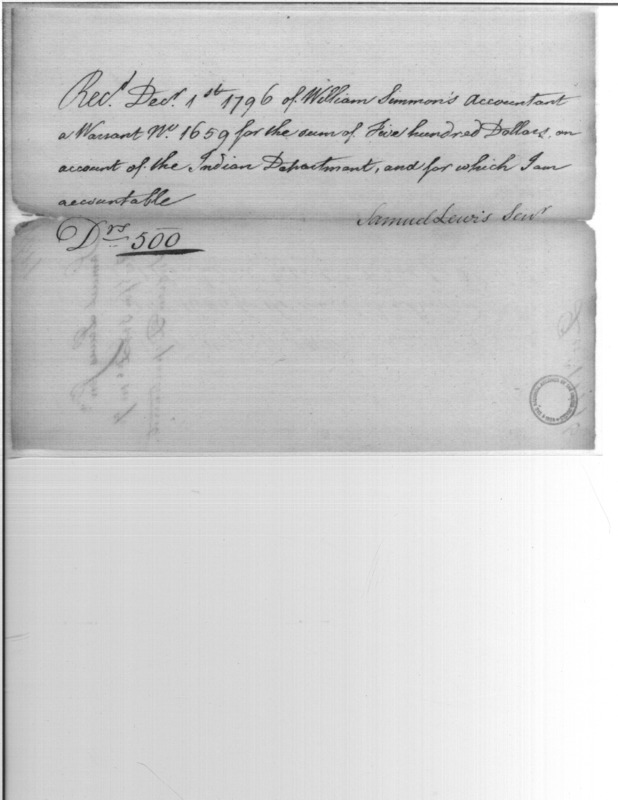 Rec.d Decr. 1st 1796 of William Simmon's Accountant
a Warrant No. 1659 for the sum of Five hundred Dollars, on
account of the Indian Department, and for which I am
accountable
Samuel Lewis Senr.
Drs 500